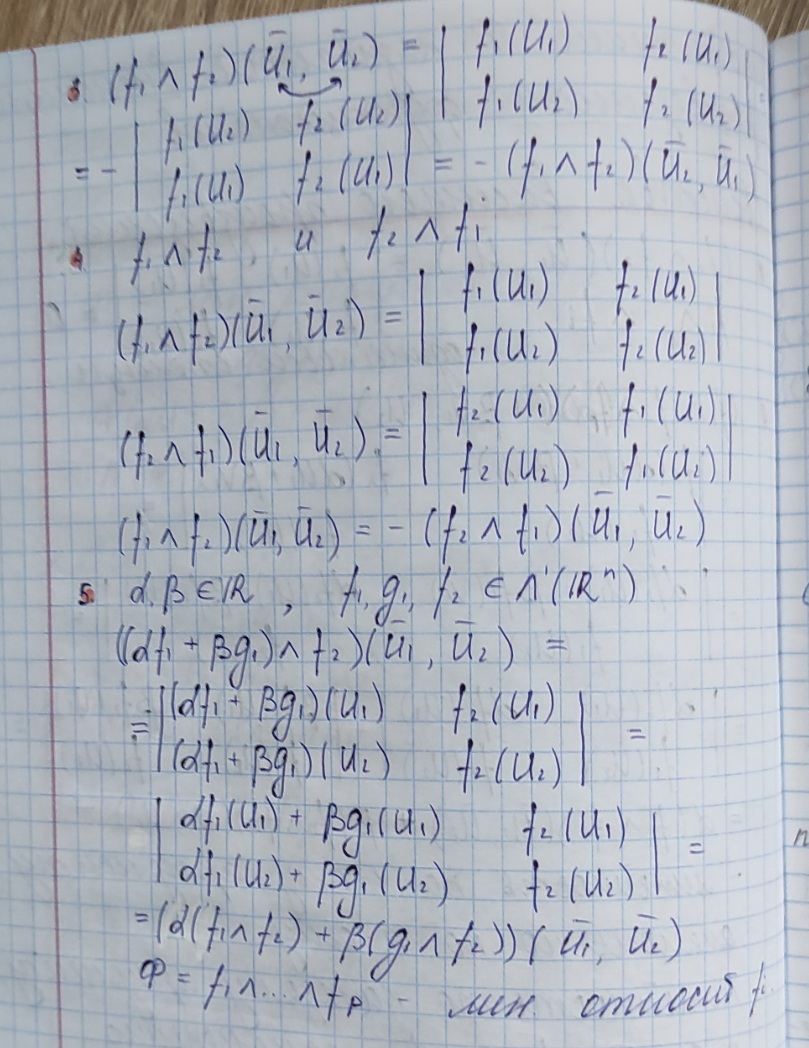 3. (f₁ ∧ f₂)(ū₁, ū₂) = | f₁(u₁) f₂(u₁) |
| f₁(u₂) f₂(u₂) |
= - | f₁(u₂) f₂(u₂) |
| f₁(u₁) f₂(u₁) | = - (f₁ ∧ f₂)(ū₂, ū₁)
4. f₁ ∧ f₂ и f₂ ∧ f₁
(f₁ ∧ f₂)(ū₁, ū₂) = | f₁(u₁) f₂(u₁) |
| f₁(u₂) f₂(u₂) |
(f₂ ∧ f₁)(ū₁, ū₂) = | f₂(u₁) f₁(u₁) |
| f₂(u₂) f₁(u₂) |
(f₁ ∧ f₂)(ū₁, ū₂) = - (f₂ ∧ f₁)(ū₁, ū₂)
5. α, β ∈ ℝ, f₁, g₁, f₂ ∈ Λ¹(ℝⁿ)
((αf₁ + βg₁) ∧ f₂)(ū₁, ū₂) =
= | (αf₁ + βg₁)(u₁) f₂(u₁) | =
| (αf₁ + βg₁)(u₂) f₂(u₂) |
| αf₁(u₁) + βg₁(u₁) f₂(u₁) | =
| αf₁(u₂) + βg₁(u₂) f₂(u₂) |
= (α(f₁ ∧ f₂) + β(g₁ ∧ f₂))(ū₁, ū₂)
Φ = f₁ ∧ ... ∧ fₚ - лин. относит fᵢ